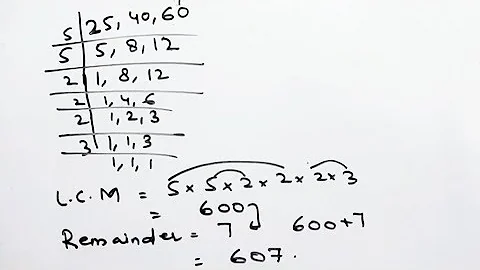 5 | 25, 40, 60
5 | 5, 8, 12
2 | 1, 8, 12
2 | 1, 4, 6
2 | 1, 2, 3
3 | 1, 1, 3
1, 1, 1
L.C.M = 5 × 5 × 2 × 2 × 2 × 3
= 600
Remainder = 7 600+7
= 607.